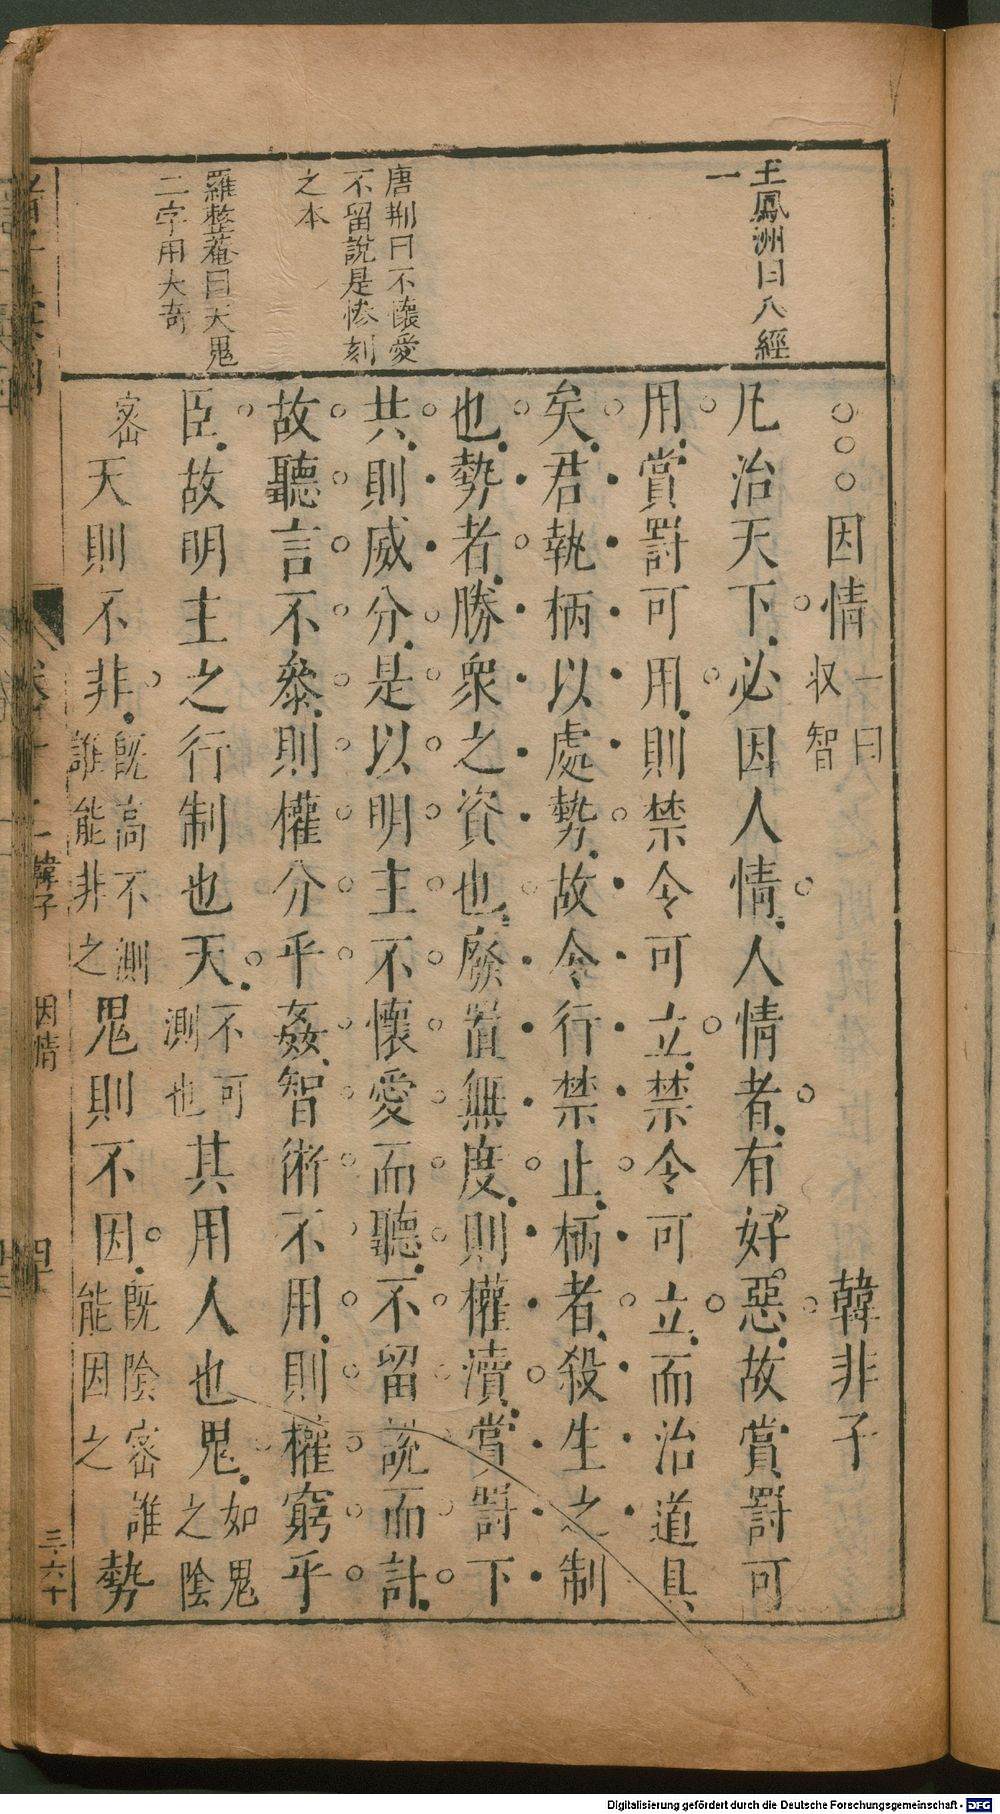 王鳳洲曰八經
一
唐荆曰不懷愛
不留說是慘刻
之本
羅整菴曰天鬼
二字用大奇
○○○因情一曰収智 韓非子
凡治天下必因人情人情者有好惡故賞罰可
用賞罰可用則禁令可立禁令可立而治道具
矣君執柄以處勢故令行禁止柄者殺生之制
也勢者勝衆之資也廢置無度則權瀆賞罰下
共則威分是以明主不懷愛而聽不留說而計
故聽言不參則權分乎姦智術不用則權窮乎
臣故明主之行制也天不可測也其用人也鬼如鬼之陰
密天則不非既高不測誰能非之鬼則不因既陰密誰能因之勢
韓子 因情
三六十
Digitalisierung gefördert durch die Deutsche Forschungsgemeinschaft - DFG